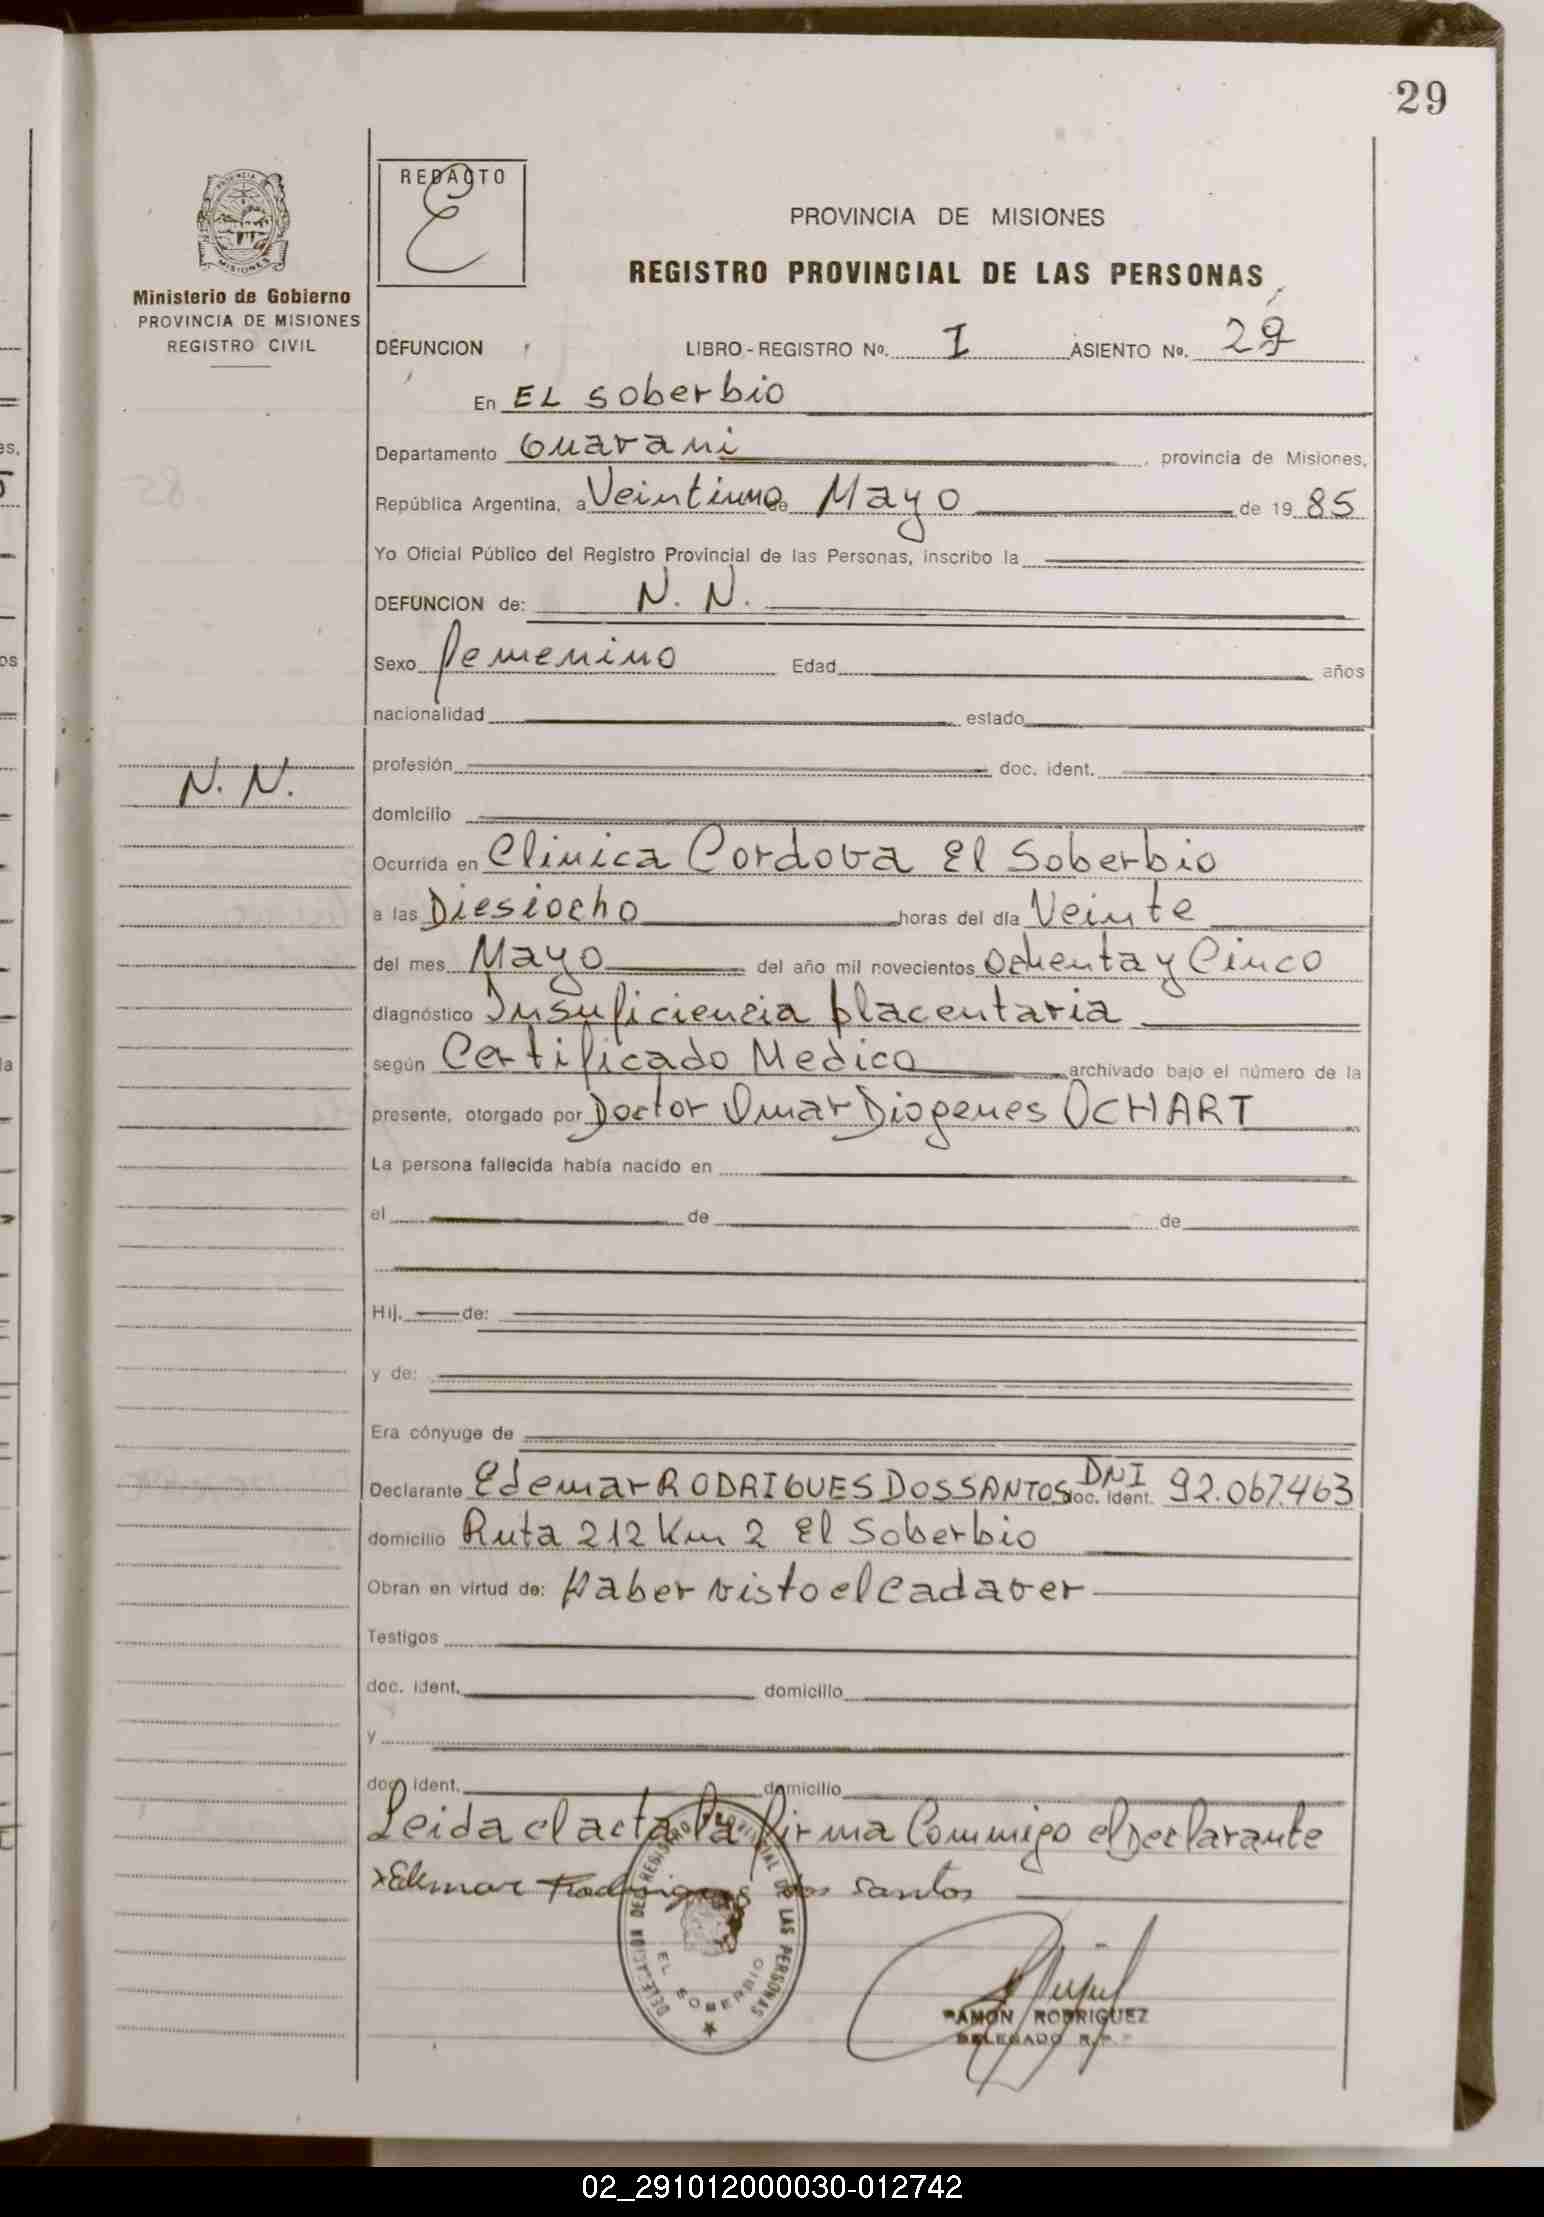 29
REDACTO
E
PROVINCIA DE MISIONES
REGISTRO PROVINCIAL DE LAS PERSONAS
PROVINCIA
MISIONES
Ministerio de Gobierno
PROVINCIA DE MISIONES
REGISTRO CIVIL
DEFUNCION LIBRO-REGISTRO No. I ASIENTO No. 29
En EL Soberbio
Departamento Guarani, provincia de Misiones,
República Argentina, a Veintiuno de Mayo de 19 85
Yo Oficial Público del Registro Provincial de las Personas, inscribo la
DEFUNCION de: N. N.
Sexo femenino Edad años
nacionalidad estado
N. N.
profesión doc. ident.
domicilio
Ocurrida en Clinica Cordova El Soberbio
a las Diesiocho horas del día Veinte
del mes Mayo del año mil novecientos Ochenta y Cinco
diagnóstico Insuficiencia placentaria
según Certificado Medico archivado bajo el número de la
presente, otorgado por Doctor Omar Diogenes OCHART
La persona fallecida había nacido en
el de de
Hij. de:
y de:
Era cónyuge de
Declarante Edemar RODRIGUES DOS SANTOS doc. ident. DNI 92.067.463
domicilio Ruta 212 Km 2 El Soberbio
Obran en virtud de: Haber visto el cadaver
Testigos
doc. ident. domicilio
y
doc. ident. domicilio
Leida el acta la firma Conmigo el Declarante
x Edemar Rodrigues dos Santos
DELEGACION DEL REGISTRO PROVINCIAL DE LAS PERSONAS
EL SOBERBIO
RAMON RODRIGUEZ
DELEGADO R.P.
02_291012000030-012742